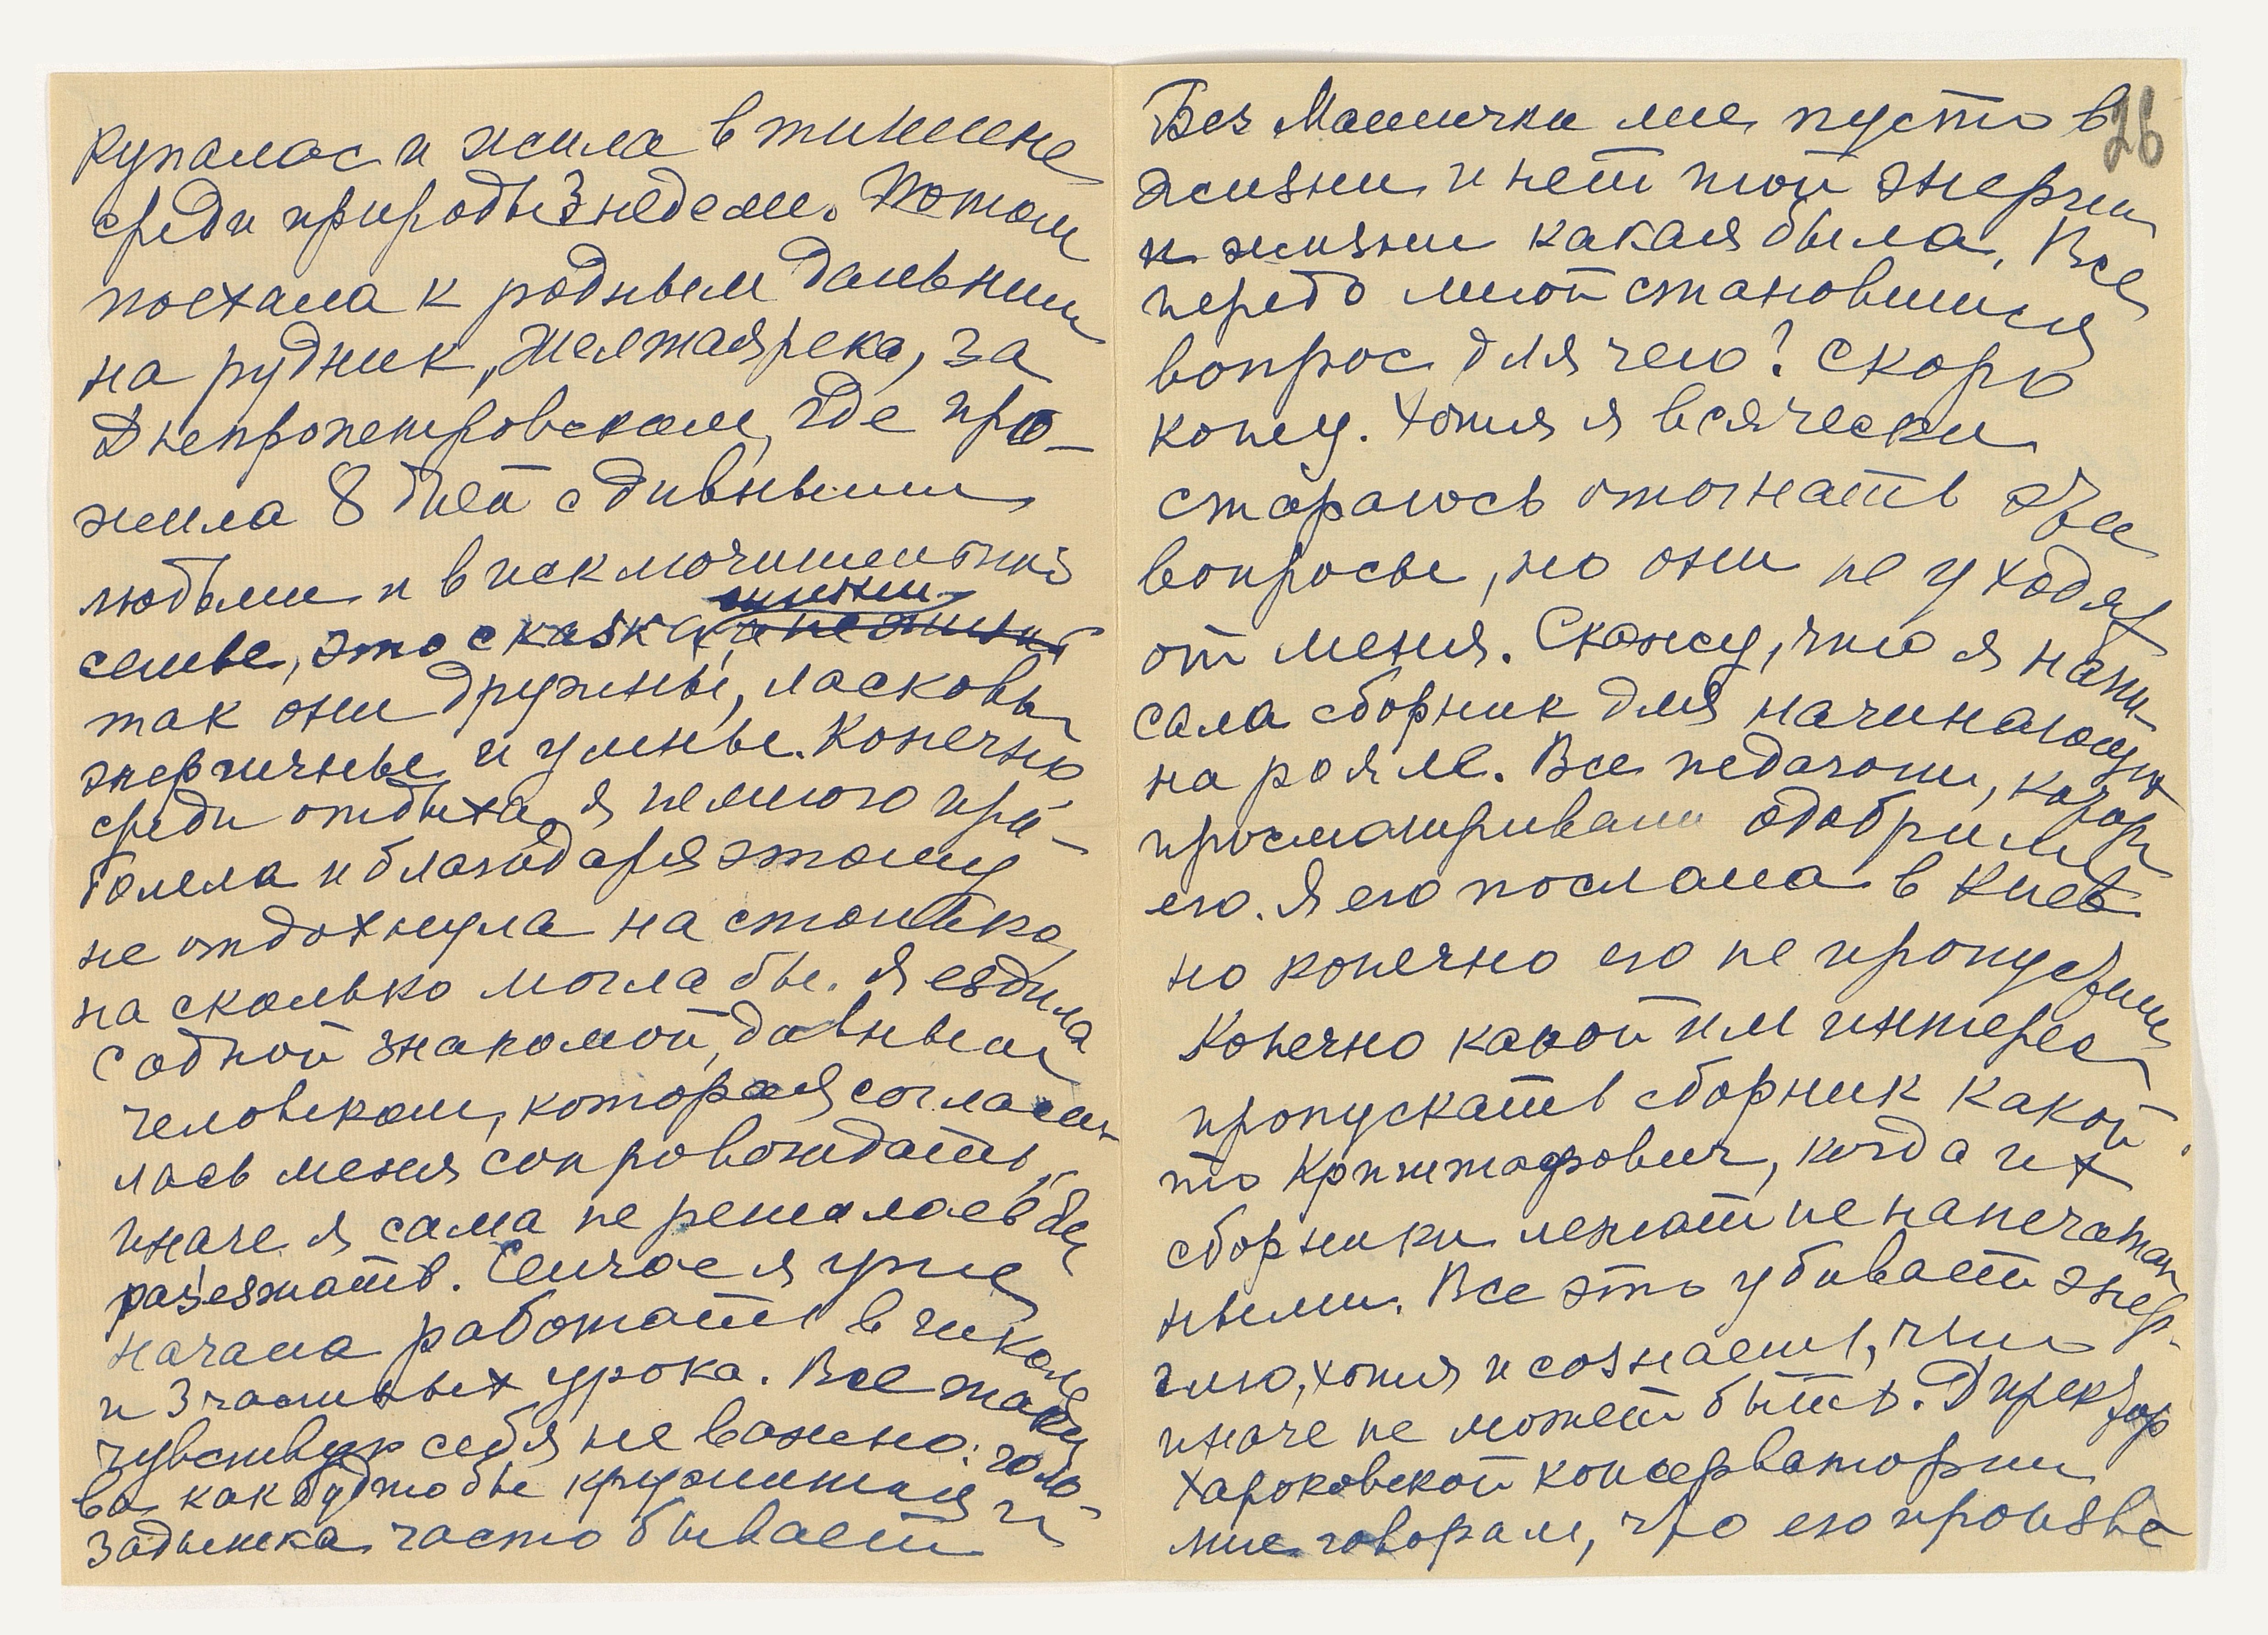 купалас и жила в тишине
среди природы 3 недели. Потом
поехала к родным дальним
на рудник, Желтая река, за
Днепропетровском, где про-
жила 8 дней с дивными
людьми и в исключительной
семье, это сказка, а не жизнь
так они дружны, ласковы
энергичные и умные. Конечно
среди отдыха я немного при-
болела и благодаря этому
не отдохнула на столько,
на сколько могла бы. Я ездила
с одной знакомой, давным
человеком, которая согласи-
лась меня сопровождать,
иначе я сама не решалась бы
разезжать. Сейчас я уже
начала работать в школе
и 3 частных урока. Все таки
чувствую себя не важно: голо-
ва как будто бы кружится и
задышка часто бывает
26
Без Машички мне пусто в
жизни и нет той энергии
и жизни какая была, Все
передо мной становится
вопрос для чего? скоро
конец. Хотя я всячески
стараюсь отогнать эти
вопросы, но они не уходят
от меня. Скажу, что я напи-
сала сборник для начинающих
на рояле. Все педагоги, котор
просматривали одобрили
его. Я его послала в Киев
но конечно его не пропустили
Конечно какой им интерес
пропускать сборник какой
то Кристафович, когда их
сборники лежат не напечатан
ными. Все это убивает энер-
гию, хотя и сознаешь, что
иначе не может быть. Директор
Харьковской консерватории
мне говорил, что его произве